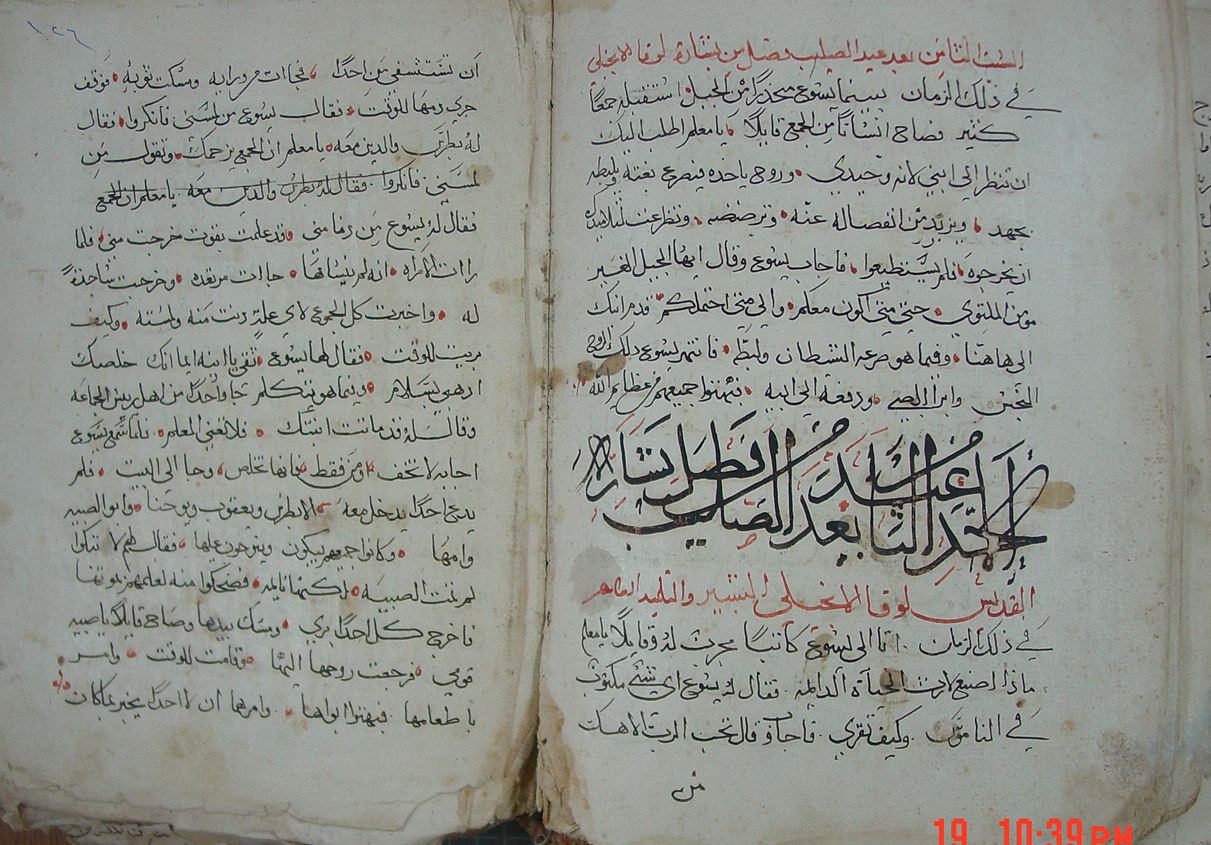 السبت الثامن بعد عيد الصليب فصل من بشارة لوقا الانجيلي
في ذلك الزمان بينما يسوع منحدراً من الجبل استقبله جمعاً
كثير فصاح انساناً من الجمع قايلاً يا معلم اطلب اليك
ان تنظر الي ابني لانه وحيدي وروح ياخده فيصرخ بغتة ويلبطه
بجهد ويزبد من انفصاله عنه وترضضه وتضرعت لتلاميذك
ان يخرجوه فلم يستطيعوا فاجاب يسوع وقال ايها الجيل الغير
مومن الملتوي حتي متي اكون معكم والي متي احتملكم قدم ابنك
الي هاهنا وفيما هو صرعه الشيطان ولبطه فانتهر يسوع دلك الروح
النجس وابرا الصبي ودفعه الي ابيه فبهتوا جميعهم من عظايم الله
الاحد التا بعد عيد الصليب فصل بشارة
القديس لوقا الانجيلي البشير والتلميد الطاهر
في ذلك الزمان اتا الي يسوع كاتباً مجرب له وقايلاً يا معلم
ماذا اصنع لارث الحياة الدايمه فقال له يسوع اي شئ مكتوب
في الناموس وكيف تقري فاجاب وقال تحب الرب الاهك
من
١٢٦
ان تستشفي من احداً فجات من ورايه ومسكت توبه فوقف
جري دمها للوقت فقال يسوع من لمسني فانكروا فقال
له بطرس والدين معه يا معلم ان الجمع يزحمك وتقول من
لمسني فانكروا فقال له بطرس والدين معه يا معلم ان الجمع
فقال له يسوع من دنا مني قد علمت بقوت خرجت مني فلما
رات الامراه انه لم ينساها جاات مرتعده وخرجت ساجدةً
له واخبرت كل الجموع لاي علةٍ دنت منه ولمسته وكيف
بريت للوقت فقال لها يسوع ثقي يا ابنه ايمانك خلصك
ادهبي بسلام وفيما هو يتكلم جا واحداً من اهل ريس الجماعه
وقال له قد ماتت ابنتك فلا تعني المعلم فلما سمع يسوع
اجابه لا تخف امن فقط فانها تخلص وجا الي البيت فلم
يدع احداً يدخل معه الا بطرس ويعقوب ويوحنا وابو الصبيه
وامها وكانوا جميعهم يبكون وينوحون عليها فقال لهم لا تبكوا
لم تمت الصبيه لكنها نايمه فضحكوا منه لعلمهم بموتها
فاخرج كل احداً بري ومسك بيدها وصاح قايلاً يا صبيه
قومي فرجعت روحها اليها وقامت للوقت وامر
باطعامها فبهتوا ابواها وامرهما ان لا احداً يخبر بما كان